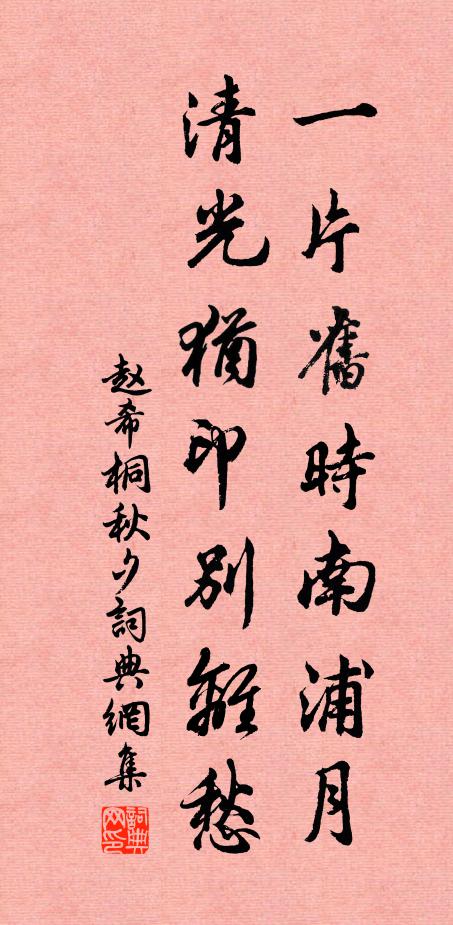 一片舊時南浦月
清光猶印別離愁
赵希桐秋夕詞典網集
詞典网印